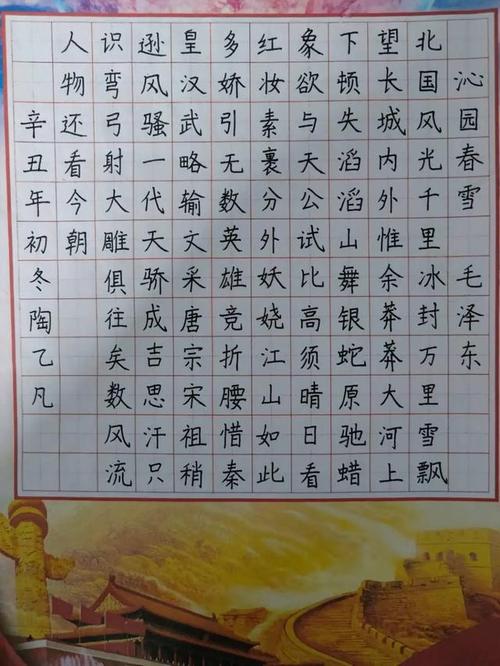 沁园春雪 毛泽东
北国风光千里冰封万里雪飘
望长城内外惟余莽莽大河上
下顿失滔滔山舞银蛇原驰蜡
象欲与天公试比高须晴日看
红妆素裹分外妖娆江山如此
多娇引无数英雄竞折腰惜秦
皇汉武略输文采唐宗宋祖稍
逊风骚一代天骄成吉思汗只
识弯弓射大雕俱往矣数风流
人物还看今朝
辛丑年初冬陶乙凡